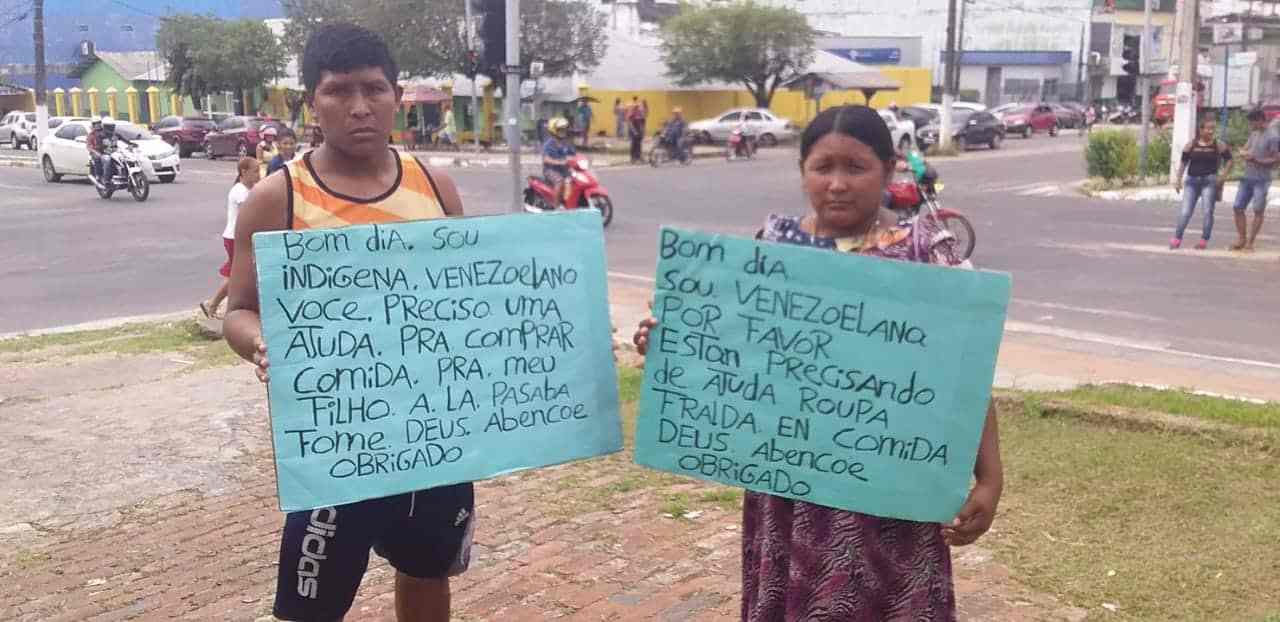 Bom dia. sou
indigena. venezoelano
voce. preciso uma
ajuda. pra comprar
comida. pra. meu
filho. a. la. pasaba
fome. Deus. Abencoe
obrigado
Bom dia
sou. venezoelana
por favor
estan precisando
de ajuda roupa
fralda en comida
Deus. Abencoe
obrigado
adidas